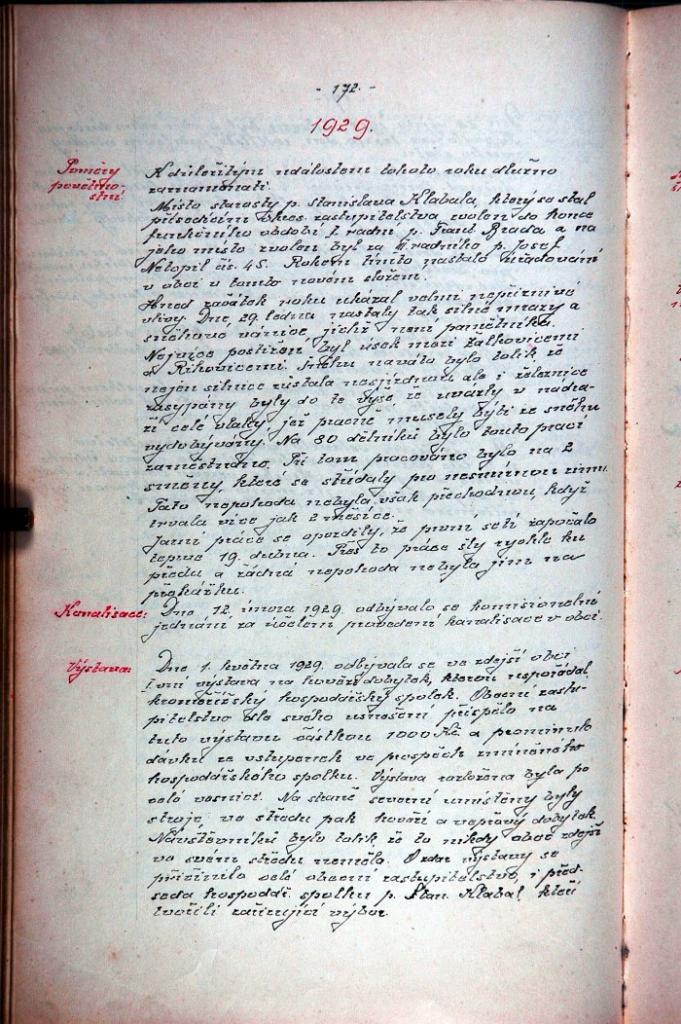 - 172. -
1929.
Poměry
povětrno-
stní.
K důležitým událostem tohoto roku dlužno
zaznamenati:
Místo starosty p. Stanislava Klabala, který se stal
přísedícím okres. zastupitelstva, zvolen do konce
funkčního období I. radní p. Frant. Brada a na
jeho místo zvolen byl za II radního p. Josef
Nelopil čís. 45. Rokem tímto nastalo úřadování
v obci v tomto novém složení.
Hned začátek roku ukázal velmi nepříznivé
vlivy. Dne 29. ledna nastaly tak silné mrazy a
sněhové vánice, jichž není pamětníka.
Nejvíce postižený byl úsek mezi Žalkovicemi
a Říkovicemi. Sněhu naváto bylo tolik, že
nejen silnice zůstala nesjízdnou ale i železnice
zasypány byly do té výše, že uvázly v nádra-
ží celé vlaky, jež pracně musely býti ze sněhu
vydobývány. Na 80 dělníků bylo touto prací
zaměstnáno. Při tom pracováno bylo na 2
směny, které se střídaly pro nesmírnou zimu.
Tato nepohoda nebyla však přechodnou, když
trvala více jak 2 měsíce.
Jarní práce se opozdily, že první setí započalo
teprve 19. dubna. Přes to práce šly rychle ku
předu a žádná nepohoda nebyla jim na
překážku.
Kanalisace:
Dne 12. února 1929. odbývalo se komisionelní
jednání za účelem provedení kanalisace v obci.
Výstava:
Dne 1. května 1929. odbývala se ve zdejší obci
I.vní výstava na hovězí dobytek, kterou uspořádal
kroměřížský hospodářský spolek. Obecní zastu-
pitelstvo dle svého usnešení přispělo na
tuto výstavu částkou 1000 Kč a prominulo
dávku ze vstupenek ve prospěch zmíněného
hospodářského spolku. Výstava rozložena byla po
celé vesnici. Na straně severní umístěny byly
stroje, ve středu pak hovězí a vepřový dobytek.
Návštěvníků bylo tolik, že to nikdy obec zdejší
ve svém středu neměla. O zdar výstavy se
přičinilo celé obecní zastupitelstvo, i před-
seda hospodář. spolku p. Stan. Klabal, kteří
tvořili zařizující výbor.